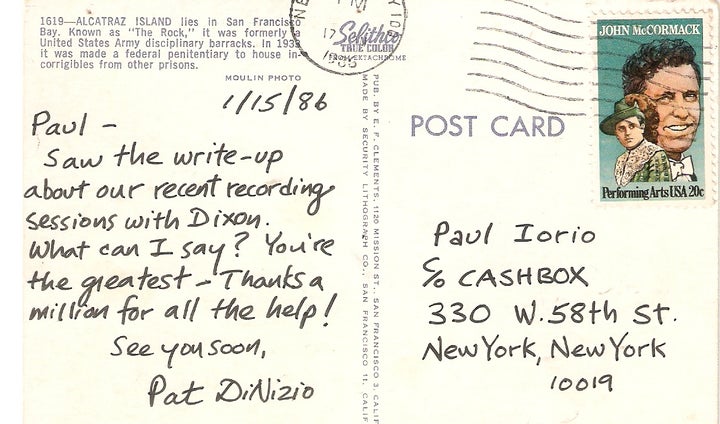 1619—ALCATRAZ ISLAND lies in San Francisco
Bay. Known as "The Rock," it was formerly a
United States Army disciplinary barracks. In 193
it was made a federal penitentiary to house in-
corrigibles from other prisons.
MOULIN PHOTO
1/15/86
Paul -
Saw the write-up
about our recent recording
sessions with Dixon.
What can I say? You're
the greatest - Thanks a
million for all the help!
See you soon,
Pat DiNizio
NE
Y 100
PM
17
Selithco
TRUE COLOR
FROM EKTACHROME
PUB. BY E. F. CLEMENTS, 1120 MISSION ST., SAN FRANCISCO 3, CALIF
MADE BY SECURITY LITHOGRAPH CO., SAN FRANCISCO 11, CALIF
POST CARD
JOHN McCORMACK
Performing Arts USA 20c
Paul Iorio
c/o CASHBOX
330 W. 58th St.
New York, New York
10019